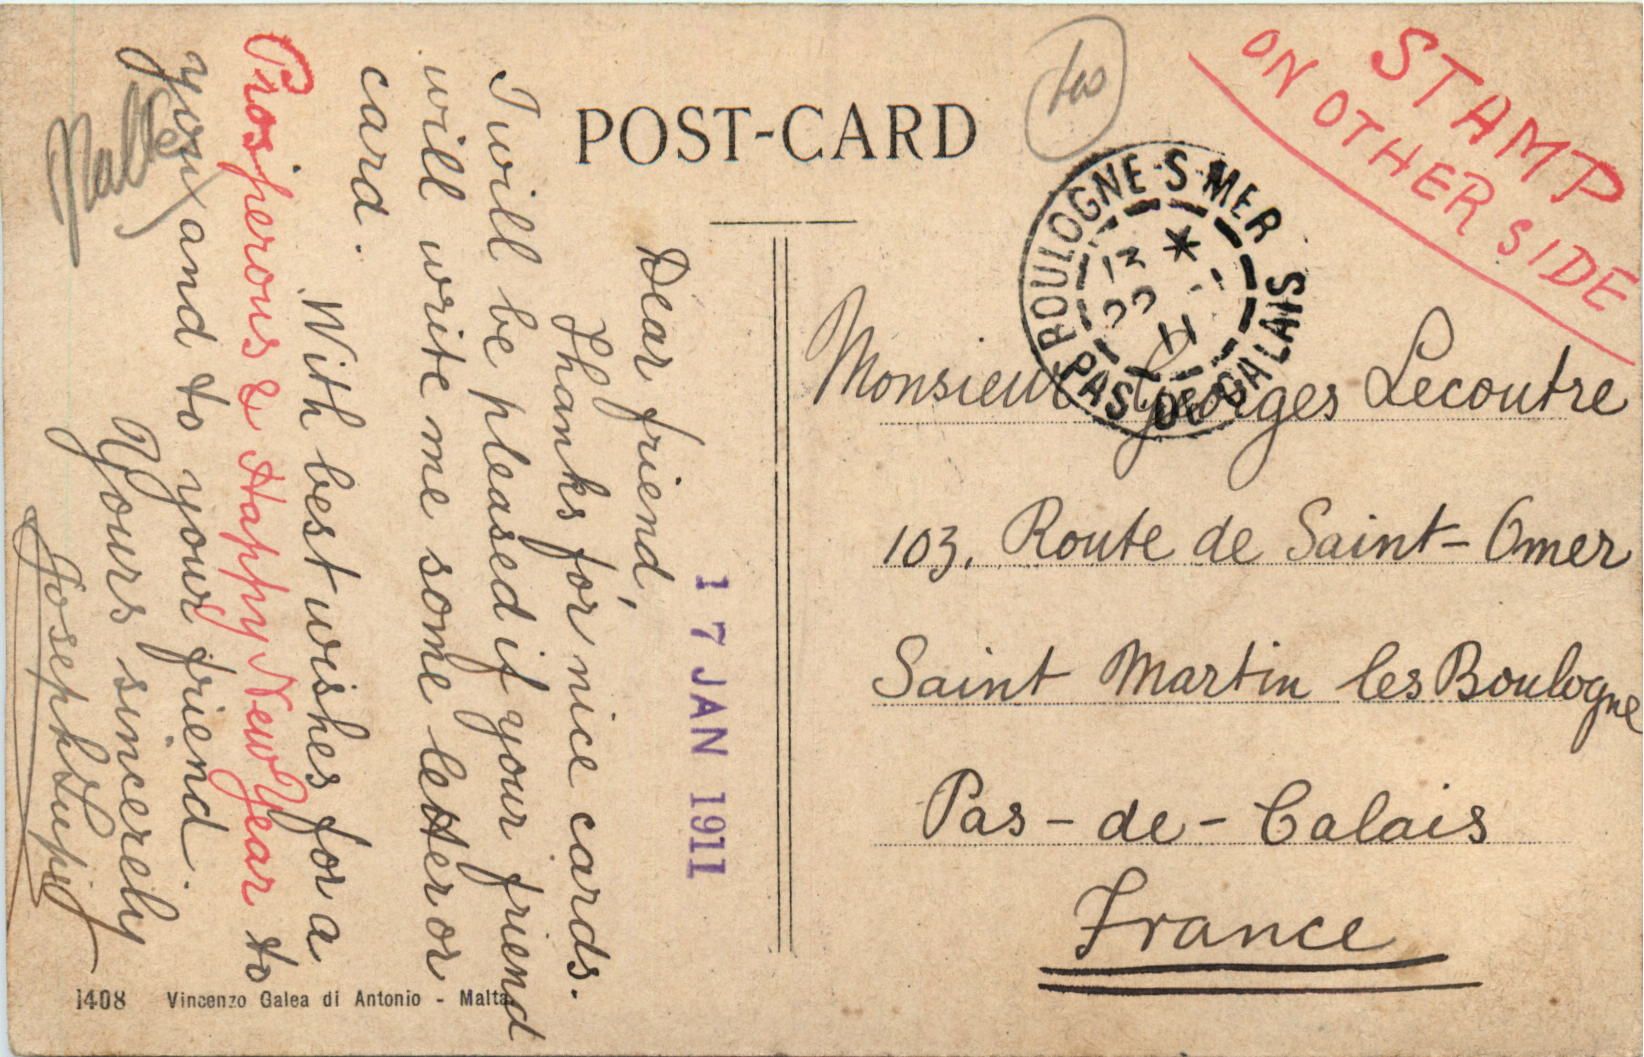 POST-CARD
STAMP
ON OTHER SIDE
BOULOGNE-S-MER
PAS DE CALAIS
11
Monsieur Georges Lecoutre
103, Route de Saint-Omer
Saint Martin les Boulogne
Pas-de-Calais
France
17 JAN 1911
Dear friend,
Thanks for nice cards.
I will be pleased if your friend
will write me some letter or
card.
With best wishes for a
Prosperous & Happy New Year to
you and to your friend
Yours sincerely
Malte
1408 Vincenzo Galea di Antonio - Malta